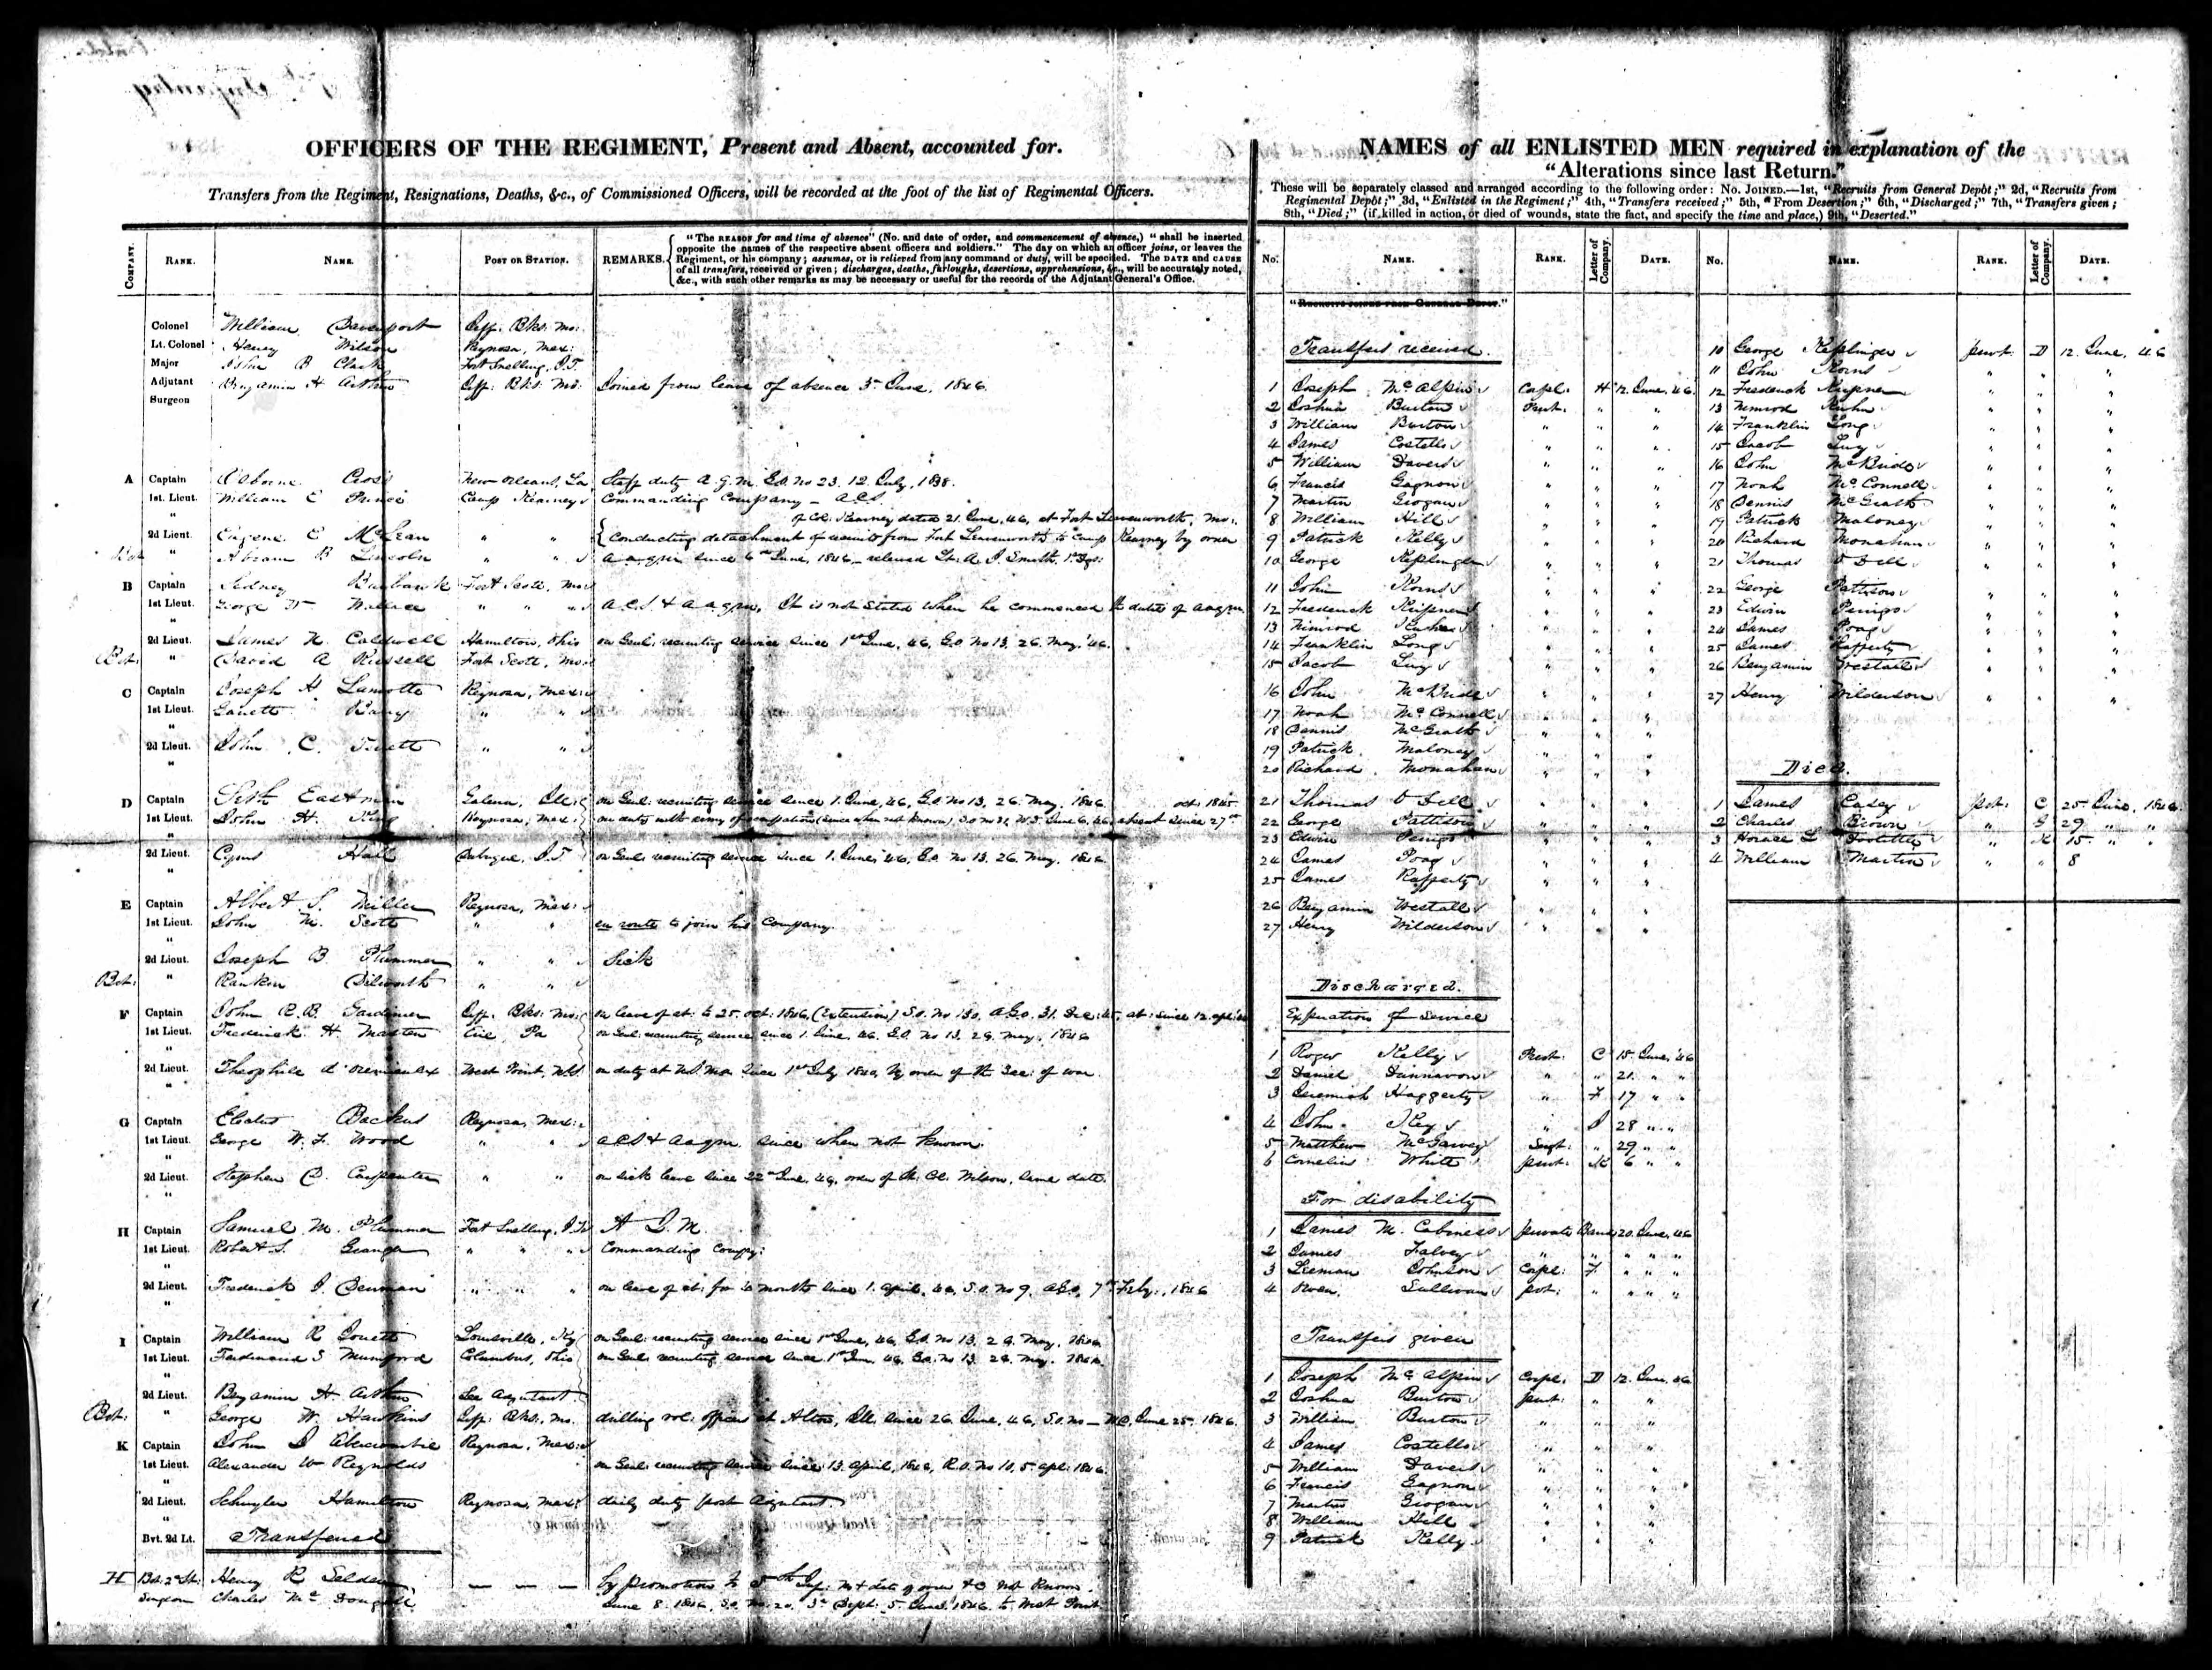 OFFICERS OF THE REGIMENT, Present and Absent, accounted for.
Transfers from the Regiment, Resignations, Deaths, &c., of Commissioned Officers, will be recorded at the foot of the list of Regimental Officers.
COMPANY. RANK. NAME. POST OR STATION. REMARKS.
"The REASON for and time of absence" (No. and date of order, and commencement of absence,) "shall be inserted
opposite the names of the respective absent officers and soldiers." The day on which an officer joins, or leaves the
Regiment, or his company; assumes, or is relieved from any command or duty, will be specified. The DATE and CAUSE
of all transfers, received or given; discharges, deaths, furloughs, desertions, apprehensions, &c., will be accurately noted,
&c., with such other remarks as may be necessary or useful for the records of the Adjutant General's Office.
Colonel William Davenport Jeff: Bks: Mo:
Lt. Colonel Henry Wilson Reynosa, Mex:
Major John B Clark Fort Snelling, I.T.
Adjutant Benjamin H Arthur Jeff: Bks: Mo: Joined from leave of absence 3d June, 1846.
Surgeon
A Captain Osborne Cross New Orleans, La Staff duty A.Q.M. G.O. No 23. 12. July, 1838.
1st. Lieut. William E Prince Camp Kearney Commanding Company – A.C.S.
" of Col: Kearney dated 21. June, 46, at Fort Leavenworth, Mo:
2d Lieut. Eugene E McLean " " conducting detachment of recruits from Fort Leavenworth to Camp Kearney by order
" Abram B Lincoln " " a.a.q.m. since 6th June, 1846 – relieved Lt. A. J. Smith, 1st Dgs:
B Captain Sidney Burbank Fort Scott, Mo:
1st Lieut. George W Wallace " " " A.C.S. & a.a.q.m. It is not stated when he commenced the duties of a.a.q.m.
"
2d Lieut. James N. Caldwell Hamilton, Ohio on Genl: recruiting service since 1st June, 46, G.O. No 13. 26. May. '46.
Bvt: " David A Russell Fort Scott, Mo:
C Captain Joseph H Lamotte Reynosa, Mex:
1st Lieut. Garrett Barry " "
"
2d Lieut. John C. Terrett " "
"
D Captain Seth Eastman Galena, Ill: on Genl: recruiting service since 1. June, 46, G.O. No 13, 26. May. 1846. oct: 1845.
1st Lieut. John H. King Reynosa, Mex: on duty with army of occupation (since when not known), absent since 27th
"
2d Lieut. Cyrus Hall Dubuque, I.T. on Genl: recruiting service since 1. June, 46, G.O. No 13. 26. May. 1846
"
E Captain Albert S. Miller Reynosa, Mex:
1st Lieut. John M. Scott " " en route to join his Company.
"
2d Lieut. Joseph B Plummer " " Sick
Bvt: " Rankin Dilworth " "
F Captain John R.B. Gardenier Jeff: Bks: Mo: on leave of ab: to 25. oct: 1846, (Extension) S.O. No 130, A.G.O. 31. Dec: 45, ab: since 12. apl:
1st Lieut. Frederick H. Masten Erie Pa on Genl: recruiting service since 1. June, 46. G.O. No 13. 26. May. 1846
"
2d Lieut. Theophile d'Oremieulx West Point, N.Y. on duty at U.S. Ma. since 1st July 1840, by order of the Sec: of War.
"
G Captain Electus Backus Reynosa, Mex:
1st Lieut. George W. F. Wood " " A.C.S & a.a.q.m. since when not known.
"
2d Lieut. Stephen D. Carpenter " " on sick leave since 22nd June, 46, order of Lt. Col. Wilson, same date.
"
H Captain Samuel M. Plummer Fort Snelling, I.T. A Q. M.
1st Lieut. Robert S. Granger " " " Commanding Compy:
"
2d Lieut. Frederick J. Denman " " " on leave of ab: for 6 months since 1. April, 46, S.O. No 9, A.G.O. 7th Feby:, 1846
"
I Captain William R Jouett Louisville, Ky on Genl: recruiting service since 1st June, 46, G.O. No 13. 26. May. 1846.
1st Lieut. Ferdinand S Mumford Columbus, Ohio on Genl: recruiting service since 1st June, 46, G.O. No 13. 26. May. 1846.
"
2d Lieut. Benjamin H Arthur See Adjutant
Bvt: " George W. Hawkins Jeff: Bks: Mo. drilling vol: officers at Alton, Ill. since 26. June, 46, S.O. No – June 25. 1846.
K Captain John J Abercrombie Reynosa, Mex:
1st Lieut. Alexander W Reynolds on Genl: recruiting service since 13. April, 1846, R.O. No 10, 5. apl: 1846.
"
2d Lieut. Schuyler Hamilton Reynosa, Mex: daily duty post Adjutant.
"
Bvt. 2d Lt. Transferred
H Bvt: 2d Lt: Henry R Selden — — — by promotion to 5th Inf: No & date of order &c not known.
Surgeon Charles McDougall June 8. 1846, S.O. No. 20. 3d Dept: 5. June. 1846. to West Point
NAMES of all ENLISTED MEN required in explanation of the
"Alterations since last Return."
These will be separately classed and arranged according to the following order: No. JOINED.—1st, "Recruits from General Depôt;" 2d, "Recruits from
Regimental Depôt;" 3d, "Enlisted in the Regiment;" 4th, "Transfers received;" 5th, "From Desertion;" 6th, "Discharged;" 7th, "Transfers given;
8th, "Died;" (if killed in action, or died of wounds, state the fact, and specify the time and place,) 9th, "Deserted."
No. NAME. RANK. Letter of Company. DATE.
"RECRUITS JOINED FROM GENERAL DEPOT."
Transfers received.
1 Joseph McAlpin Corpl: H 12. June, 46
2 Joshua Burton Privt: " "
3 William Burton " " "
4 James Costello " " "
5 William Davers " " "
6 Francis Gagnon " " "
7 Martin Grogan " " "
8 William Hill " " "
9 Patrick Kelly " " "
10 George Keplinger " " "
11 John Korns " " "
12 Frederick " " "
13 Nimrod Kuhn " " "
14 Franklin Long " " "
15 Jacob Luy " " "
16 John McBride " " "
17 Noah McConnell " " "
18 Dennis McGrath " " "
19 Patrick Maloney " " "
20 Richard Monahan " " "
21 Thomas O'Dell " " "
22 George Pattison " " "
23 Edwin " " "
24 James Poag " " "
25 James Rafferty " " "
26 Benjamin Westall " " "
27 Henry Wilderson " " "
Discharged.
Expiration of Service
1 Roger Kelly Privt: C 15. June, 46
2 Daniel Dunnavon " " 21. " "
3 Jeremiah Haggerty " F 17 " "
4 John Key " I 28 " "
5 Matthew McGarvey Sergt: " 29 " "
6 Cornelius White privt: K 6 " "
For disability
1 James M. Cabiness private Band 20. June, 46
2 James Falvey " " " " "
3 Leeman Johnson Corpl: F " " "
4 Owen Sullivan pvt: " " " "
Transfers given
1 Joseph McAlpin Corpl: D 12. June. 46
2 Joshua Burton privt: " "
3 William Burton " " "
4 James Costello " " "
5 William Davers " " "
6 Francis Gagnon " " "
7 Martin Grogan " " "
8 William Hill " " "
9 Patrick Kelly " " "
No. NAME. RANK. Letter of Company. DATE.
10 George Keplinger privt: D 12. June, 46
11 John Korns " " "
12 Frederick " " "
13 Nimrod Kuhn " " "
14 Franklin Long " " "
15 Jacob Luy " " "
16 John McBride " " "
17 Noah McConnell " " "
18 Dennis McGrath " " "
19 Patrick Maloney " " "
20 Richard Monahan " " "
21 Thomas O'Dell " " "
22 George Pattison " " "
23 Edwin " " "
24 James Poag " " "
25 James Rafferty " " "
26 Benjamin Westall " " "
27 Henry Wilderson " " "
Died.
1 James Casey pvt: C 25. June, 1846.
2 Charles Brown " G 29 " "
3 Horace L Doolittle " K 15. " "
4 William Martin " " 8